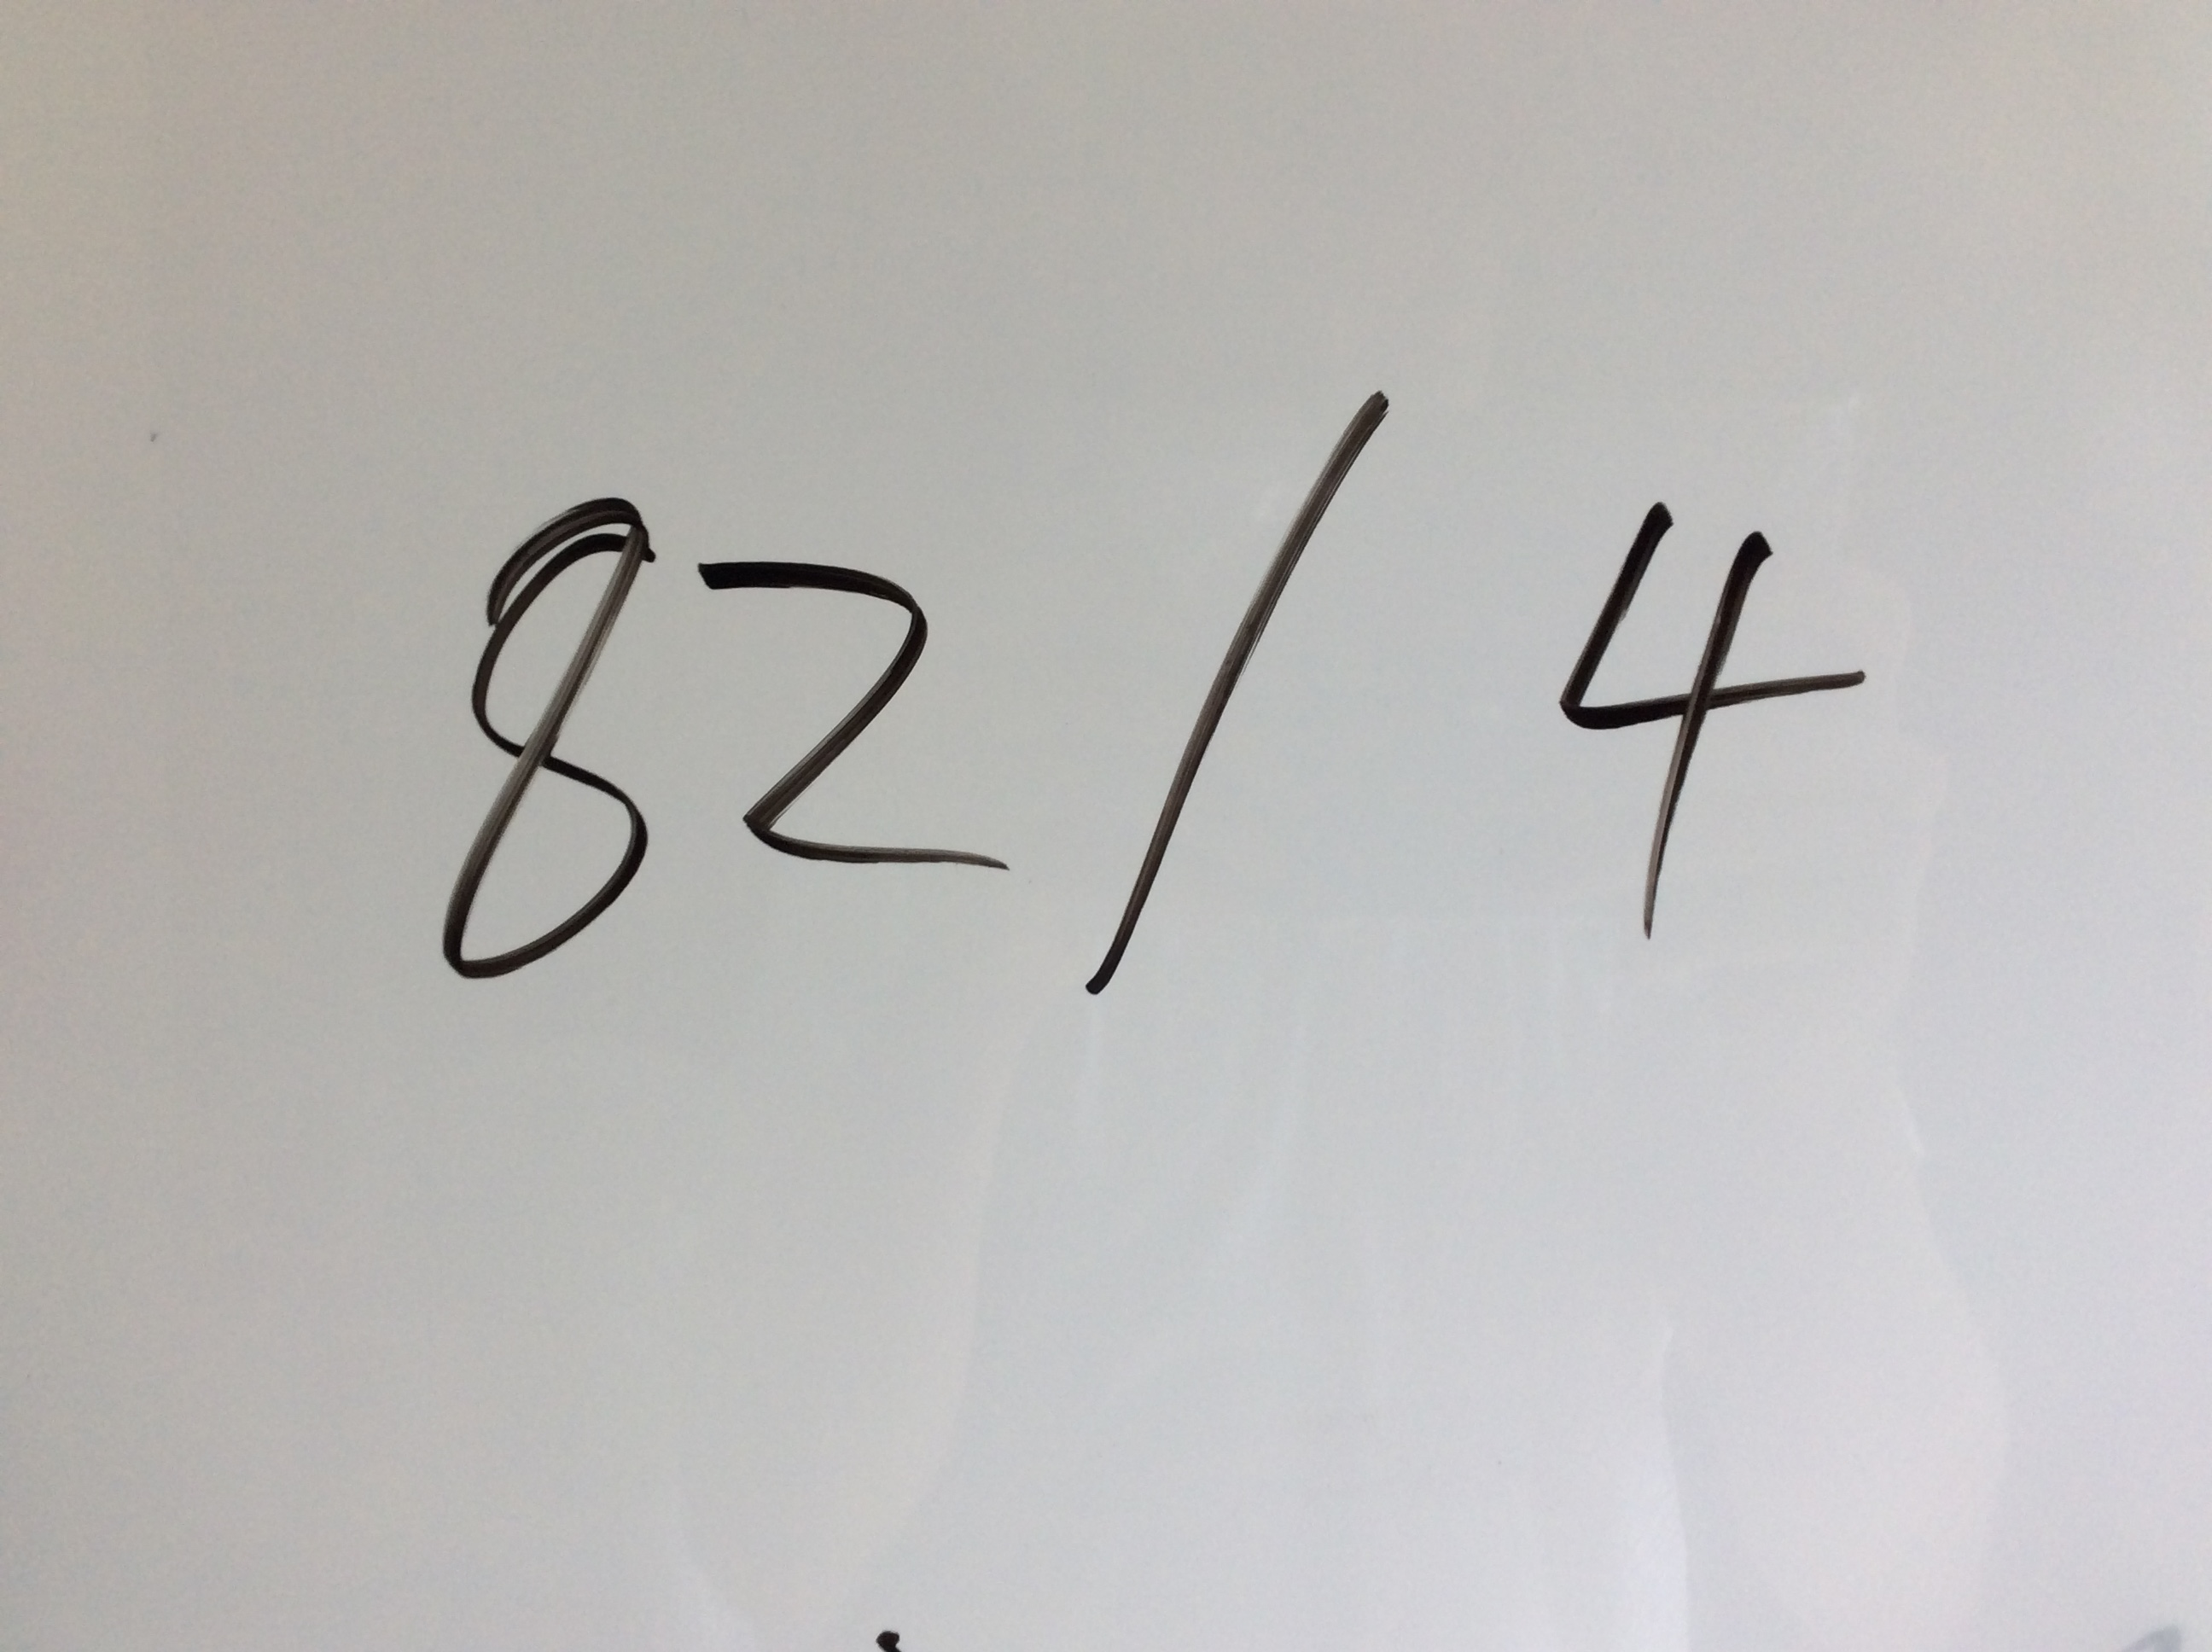 82 / 4